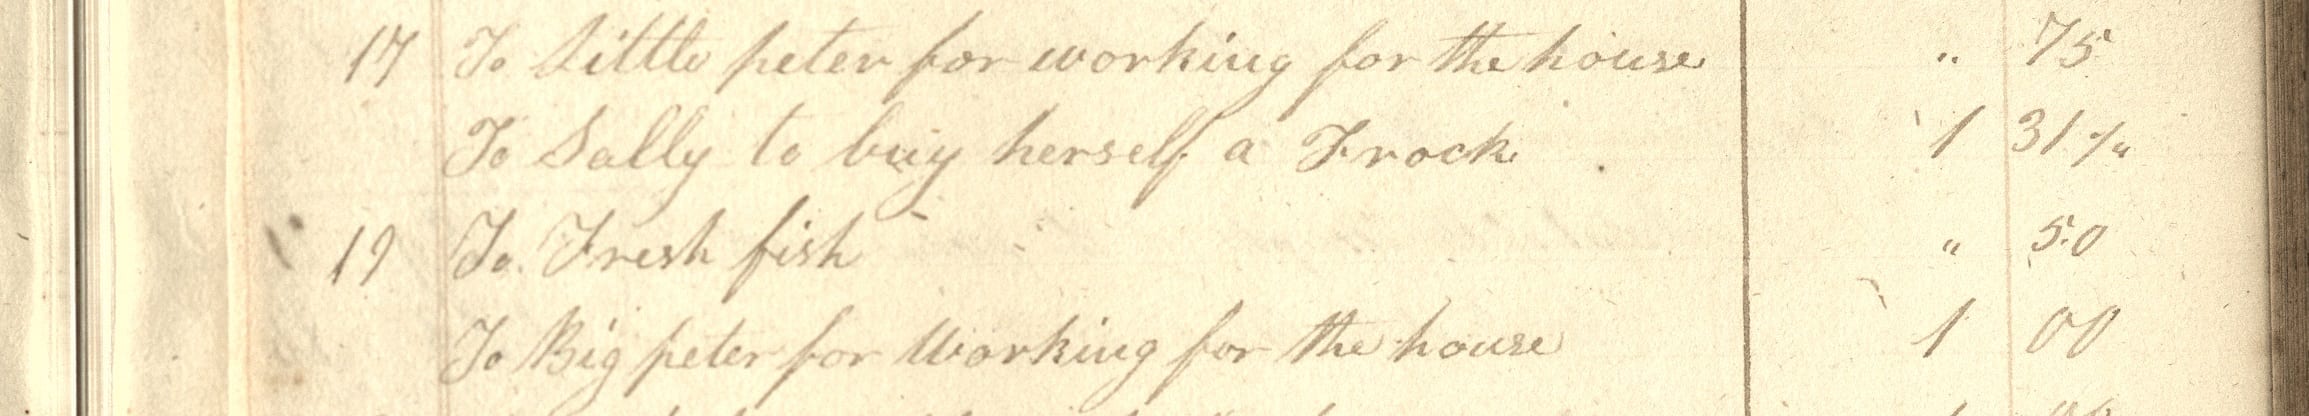 17 To Little peter for working for the house " 75
To Sally to buy herself a Frock 1 31 1/4
19 To Fresh fish " 50
To Big peter for Working for the house 1 00